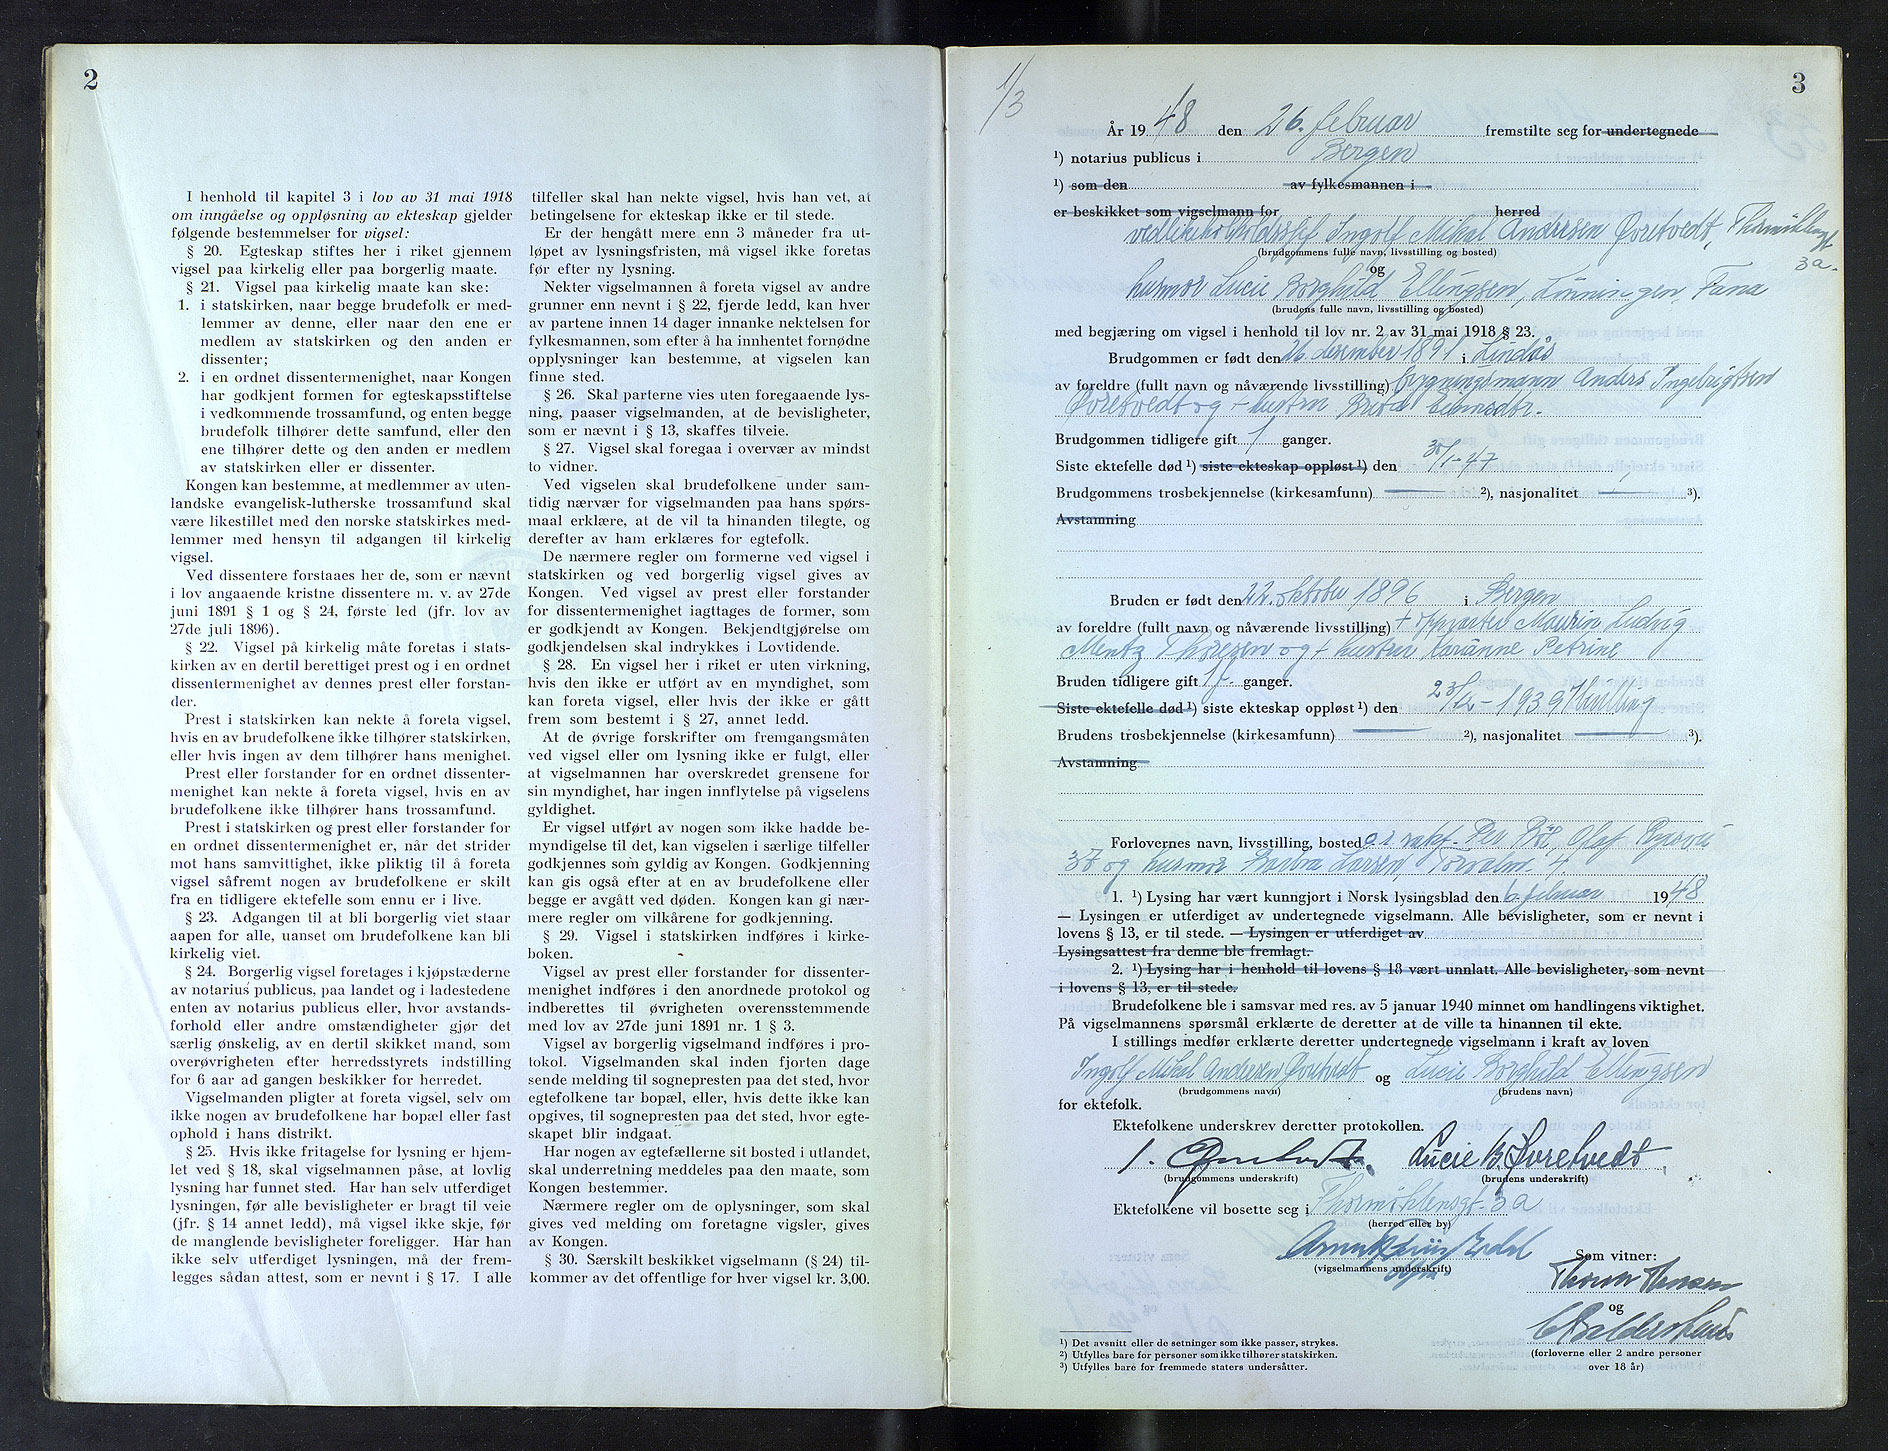 2
I henhold til kapitel 3 i lov av 31 mai 1918
om inngåelse og oppløsning av ekteskap gjelder
følgende bestemmelser for vigsel:
§ 20. Egteskap stiftes her i riket gjennem
vigsel paa kirkelig eller paa borgerlig maate.
§ 21. Vigsel paa kirkelig maate kan ske:
1. i statskirken, naar begge brudefolk er med-
lemmer av denne, eller naar den ene er
medlem av statskirken og den anden er
dissenter;
2. i en ordnet dissentermenighet, naar Kongen
har godkjent formen for egteskapsstiftelse
i vedkommende trossamfund, og enten begge
brudefolk tilhører dette samfund, eller den
ene tilhører dette og den anden er medlem
av statskirken eller er dissenter.
Kongen kan bestemme, at medlemmer av uten-
landske evangelisk-lutherske trossamfund skal
være likestillet med den norske statskirkes med-
lemmer med hensyn til adgangen til kirkelig
vigsel.
Ved dissentere forstaaes her de, som er nævnt
i lov angaaende kristne dissentere m. v. av 27de
juni 1891 § 1 og § 24, første led (jfr. lov av
27de juli 1896).
§ 22. Vigsel på kirkelig måte foretas i stats-
kirken av en dertil berettiget prest og i en ordnet
dissentermenighet av dennes prest eller forstan-
der.
Prest i statskirken kan nekte å foreta vigsel,
hvis en av brudefolkene ikke tilhører statskirken,
eller hvis ingen av dem tilhører hans menighet.
Prest eller forstander for en ordnet dissenter-
menighet kan nekte å foreta vigsel, hvis en av
brudefolkene ikke tilhører hans trossamfund.
Prest i statskirken og prest eller forstander for
en ordnet dissentermenighet er, når det strider
mot hans samvittighet, ikke pliktig til å foreta
vigsel såfremt nogen av brudefolkene er skilt
fra en tidligere ektefelle som ennu er i live.
§ 23. Adgangen til at bli borgerlig viet staar
aapen for alle, uanset om brudefolkene kan bli
kirkelig viet.
§ 24. Borgerlig vigsel foretages i kjøpstæderne
av notarius publicus, paa landet og i ladestedene
enten av notarius publicus eller, hvor avstands-
forhold eller andre omstændigheter gjør det
særlig ønskelig, av en dertil skikket mand, som
overøvrigheten efter herredsstyrets indstilling
for 6 aar ad gangen beskikker for herredet.
Vigselmanden pligter at foreta vigsel, selv om
ikke nogen av brudefolkene har bopæl eller fast
ophold i hans distrikt.
§ 25. Hvis ikke fritagelse for lysning er hjem-
let ved § 18, skal vigselmannen påse, at lovlig
lysning har funnet sted. Har han selv utferdiget
lysningen, før alle bevisligheter er bragt til veie
(jfr. § 14 annet ledd), må vigsel ikke skje, før
de manglende bevisligheter foreligger. Hår han
ikke selv utferdiget lysningen, må der frem-
legges sådan attest, som er nevnt i § 17. I alle
tilfeller skal han nekte vigsel, hvis han vet, at
betingelsene for ekteskap ikke er til stede.
Er der hengått mere enn 3 måneder fra ut-
løpet av lysningsfristen, må vigsel ikke foretas
før efter ny lysning.
Nekter vigselmannen å foreta vigsel av andre
grunner enn nevnt i § 22, fjerde ledd, kan hver
av partene innen 14 dager innanke nektelsen for
fylkesmannen, som efter å ha innhentet fornødne
opplysninger kan bestemme, at vigselen kan
finne sted.
§ 26. Skal parterne vies uten foregaaende lys-
ning, paaser vigselmanden, at de bevisligheter,
som er nævnt i § 13, skaffes tilveie.
§ 27. Vigsel skal foregaa i overvær av mindst
to vidner.
Ved vigselen skal brudefolkene under sam-
tidig nærvær for vigselmanden paa hans spørs-
maal erklære, at de vil ta hinanden tilegte, og
derefter av ham erklæres for egtefolk.
De nærmere regler om formerne ved vigsel i
statskirken og ved borgerlig vigsel gives av
Kongen. Ved vigsel av prest eller forstander
for dissentermenighet iagttages de former, som
er godkjendt av Kongen. Bekjendtgjørelse om
godkjendelsen skal indrykkes i Lovtidende.
§ 28. En vigsel her i riket er uten virkning,
hvis den ikke er utført av en myndighet, som
kan foreta vigsel, eller hvis der ikke er gått
frem som bestemt i § 27, annet ledd.
At de øvrige forskrifter om fremgangsmåten
ved vigsel eller om lysning ikke er fulgt, eller
at vigselmannen har overskredet grensene for
sin myndighet, har ingen innflytelse på vigselens
gyldighet.
Er vigsel utført av nogen som ikke hadde be-
myndigelse til det, kan vigselen i særlige tilfeller
godkjennes som gyldig av Kongen. Godkjenning
kan gis også efter at en av brudefolkene eller
begge er avgått ved døden. Kongen kan gi nær-
mere regler om vilkårene for godkjenning.
§ 29. Vigsel i statskirken indføres i kirke-
boken.
Vigsel av prest eller forstander for dissenter-
menighet indføres i den anordnede protokol og
indberettes til øvrigheten overensstemmende
med lov av 27de juni 1891 nr. 1 § 3.
Vigsel av borgerlig vigselmand indføres i pro-
tokol. Vigselmanden skal inden fjorten dage
sende melding til sognepresten paa det sted, hvor
egtefolkene tar bopæl, eller, hvis dette ikke kan
opgives, til sognepresten paa det sted, hvor egte-
skapet blir indgaat.
Har nogen av egtefællerne sit bosted i utlandet,
skal underretning meddeles paa den maate, som
Kongen bestemmer.
Nærmere regler om de oplysninger, som skal
gives ved melding om foretagne vigsler, gives
av Kongen.
§ 30. Særskilt beskikket vigselmann (§ 24) til-
kommer av det offentlige for hver vigsel kr. 3,00.
1/3
3
År 1948 den 26. februar fremstilte seg for undertegnede
¹) notarius publicus i Bergen
¹) som den av fylkesmannen i
er beskikket som vigselmann for herred
Ingolf Mikal Andersen Øvretvedt, Thormøhlensgt.
3a.
(brudgommens fulle navn, livsstilling og bosted)
og
husmor Lucie Borghild Ellingsen, Lønningen, Fana
(brudens fulle navn, livsstilling og bosted)
med begjæring om vigsel i henhold til lov nr. 2 av 31 mai 1918 § 23.
Brudgommen er født den 26. desember 1891 i Lindås
av foreldre (fullt navn og nåværende livsstilling) bygningsmann Anders Ingebrigtsen
Øvretvedt og + hustru Brita
Brudgommen tidligere gift 1 ganger.
Siste ektefelle død ¹) siste ekteskap oppløst ¹) den 30/1-47
Brudgommens trosbekjennelse (kirkesamfunn) ²), nasjonalitet ³).
Avstamning
Bruden er født den 22. oktober 1896 i Bergen
av foreldre (fullt navn og nåværende livsstilling) + Ludvig
Mentz Thoresen og + hustru Karanne Petrine
Bruden tidligere gift 1 ganger.
Siste ektefelle død ¹) siste ekteskap oppløst ¹) den 23/12-1939
Brudens trosbekjennelse (kirkesamfunn) ²), nasjonalitet ³).
Avstamning
Forlovernes navn, livsstilling, bosted Per Olaf Ryesvei
37 og husmor Larsen, 4
1. ¹) Lysing har vært kunngjort i Norsk lysingsblad den 6. februar 1948
— Lysingen er utferdiget av undertegnede vigselmann. Alle bevisligheter, som er nevnt i
lovens § 13, er til stede. — Lysingen er utferdiget av
Lysingsattest fra denne ble fremlagt.
2. ¹) Lysing har i henhold til lovens § 18 vært unnlatt. Alle bevisligheter, som nevnt
i lovens § 13, er til stede.
Brudefolkene ble i samsvar med res. av 5 januar 1940 minnet om handlingens viktighet.
På vigselmannens spørsmål erklærte de deretter at de ville ta hinannen til ekte.
I stillings medfør erklærte deretter undertegnede vigselmann i kraft av loven
Ingolf Mikal Andersen Øvretvedt og Lucie Borghild Ellingsen
(brudgommens navn) (brudens navn)
for ektefolk.
Ektefolkene underskrev deretter protokollen.
I. Øvretvedt. Lucie B. Øvretvedt.
(brudgommens underskrift) (brudens underskrift)
Ektefolkene vil bosette seg i Thormøhlensgt. 3a
(herred eller by)
(vigselmannens underskrift)
Som vitner:
Hansen
og
(forloverne eller 2 andre personer
over 18 år)
¹) Det avsnitt eller de setninger som ikke passer, strykes.
²) Utfylles bare for personer som ikke tilhører statskirken.
³) Utfylles bare for fremmede staters undersåtter.